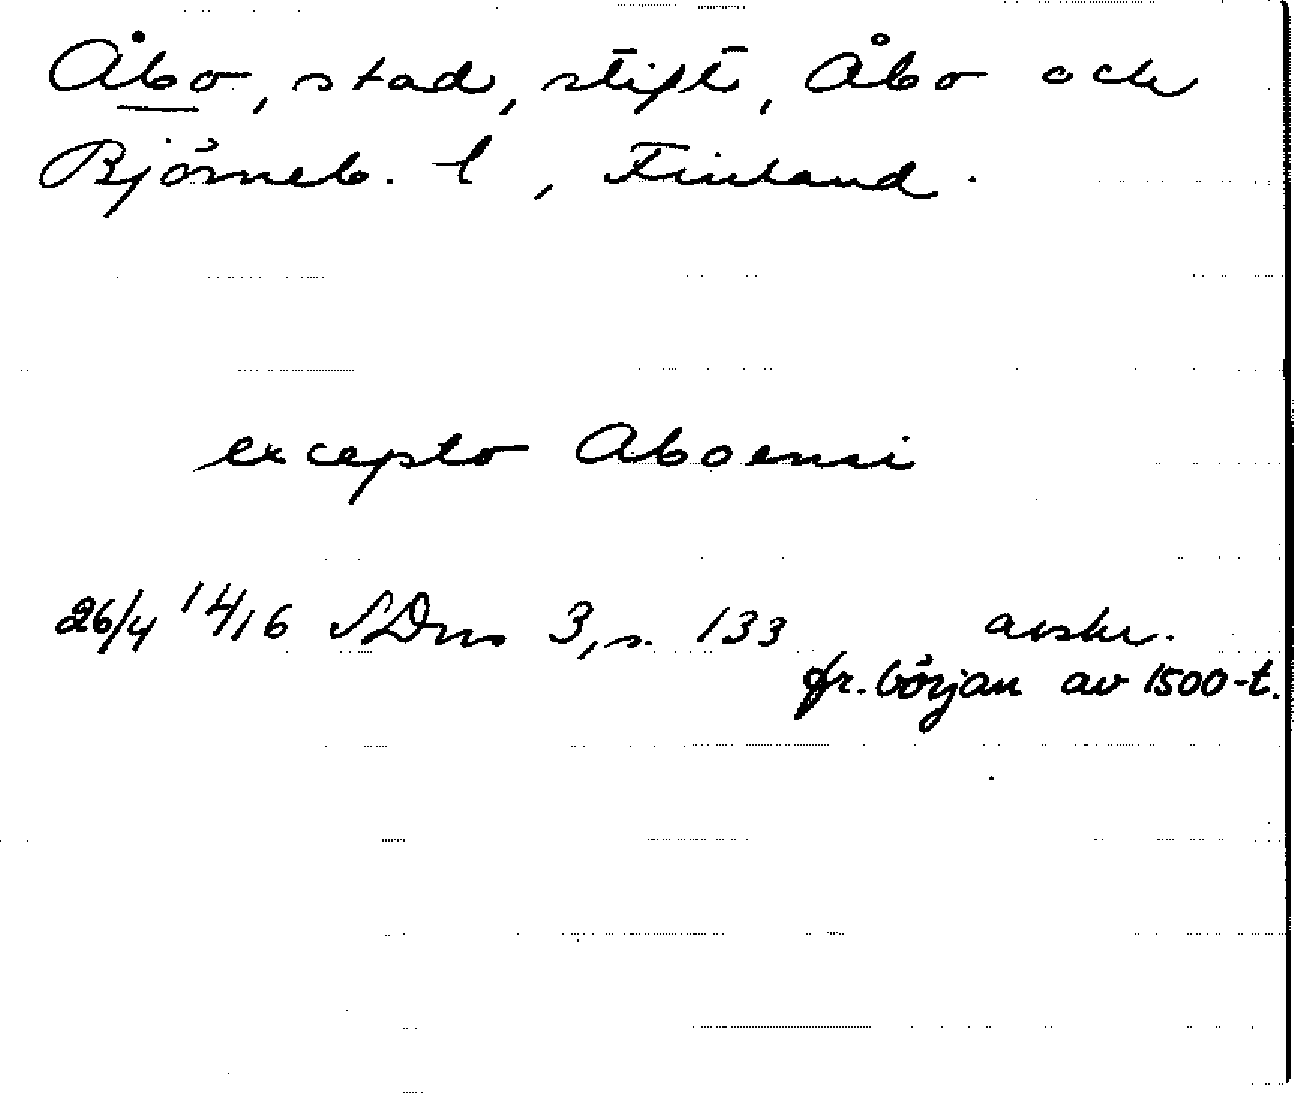 Åbo, stad, stift, Åbo och
Björneb. l, Finland.
excepto Aboensi
26/4 1416 SDns 3, s. 133 avskr.
fr. början av 1500-t.